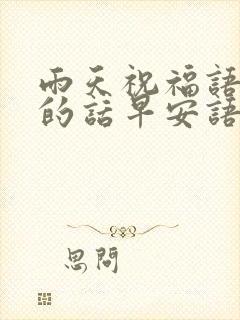 雨天祝福語
的話早安語
思問